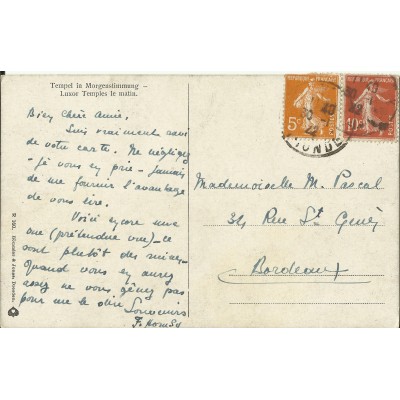 Tempel in Morgenstimmung –
Luxor Temples le matin.
Bien chère amie.
Suis vraiment ravi
de votre carte. Ne négligez
je vous en prie – jamais
de me fournir l'avantage
de vous lire.
Voici encore une
vue (prétendue vue) – ce
sont plutôt des ruines –
Quand vous en aurez
assez ne vous gênez pas
pour me le dire
Souvenirs
F.
REPUBLIQUE FRANÇAISE
5c
10c
Mademoiselle M. Pascal
34 Rue St Genès
Bordeaux